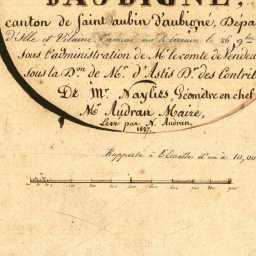 D'AUBIGNE,
canton de Saint aubin d'aubigné, Dépa
d'Ille et Vilaine terminé sur le terrain le 26 9bre
Sous l'administration de Mr. le comte de Vendeu
Sous la Don. de Mr. d'Astis Dr. des Contrib
De Mr. Naylies Géomètre en chef
Mr. Audran Maire,
Levé par N. Audran.
1827.
Rapporté à l'Echelle d'un à 10,00